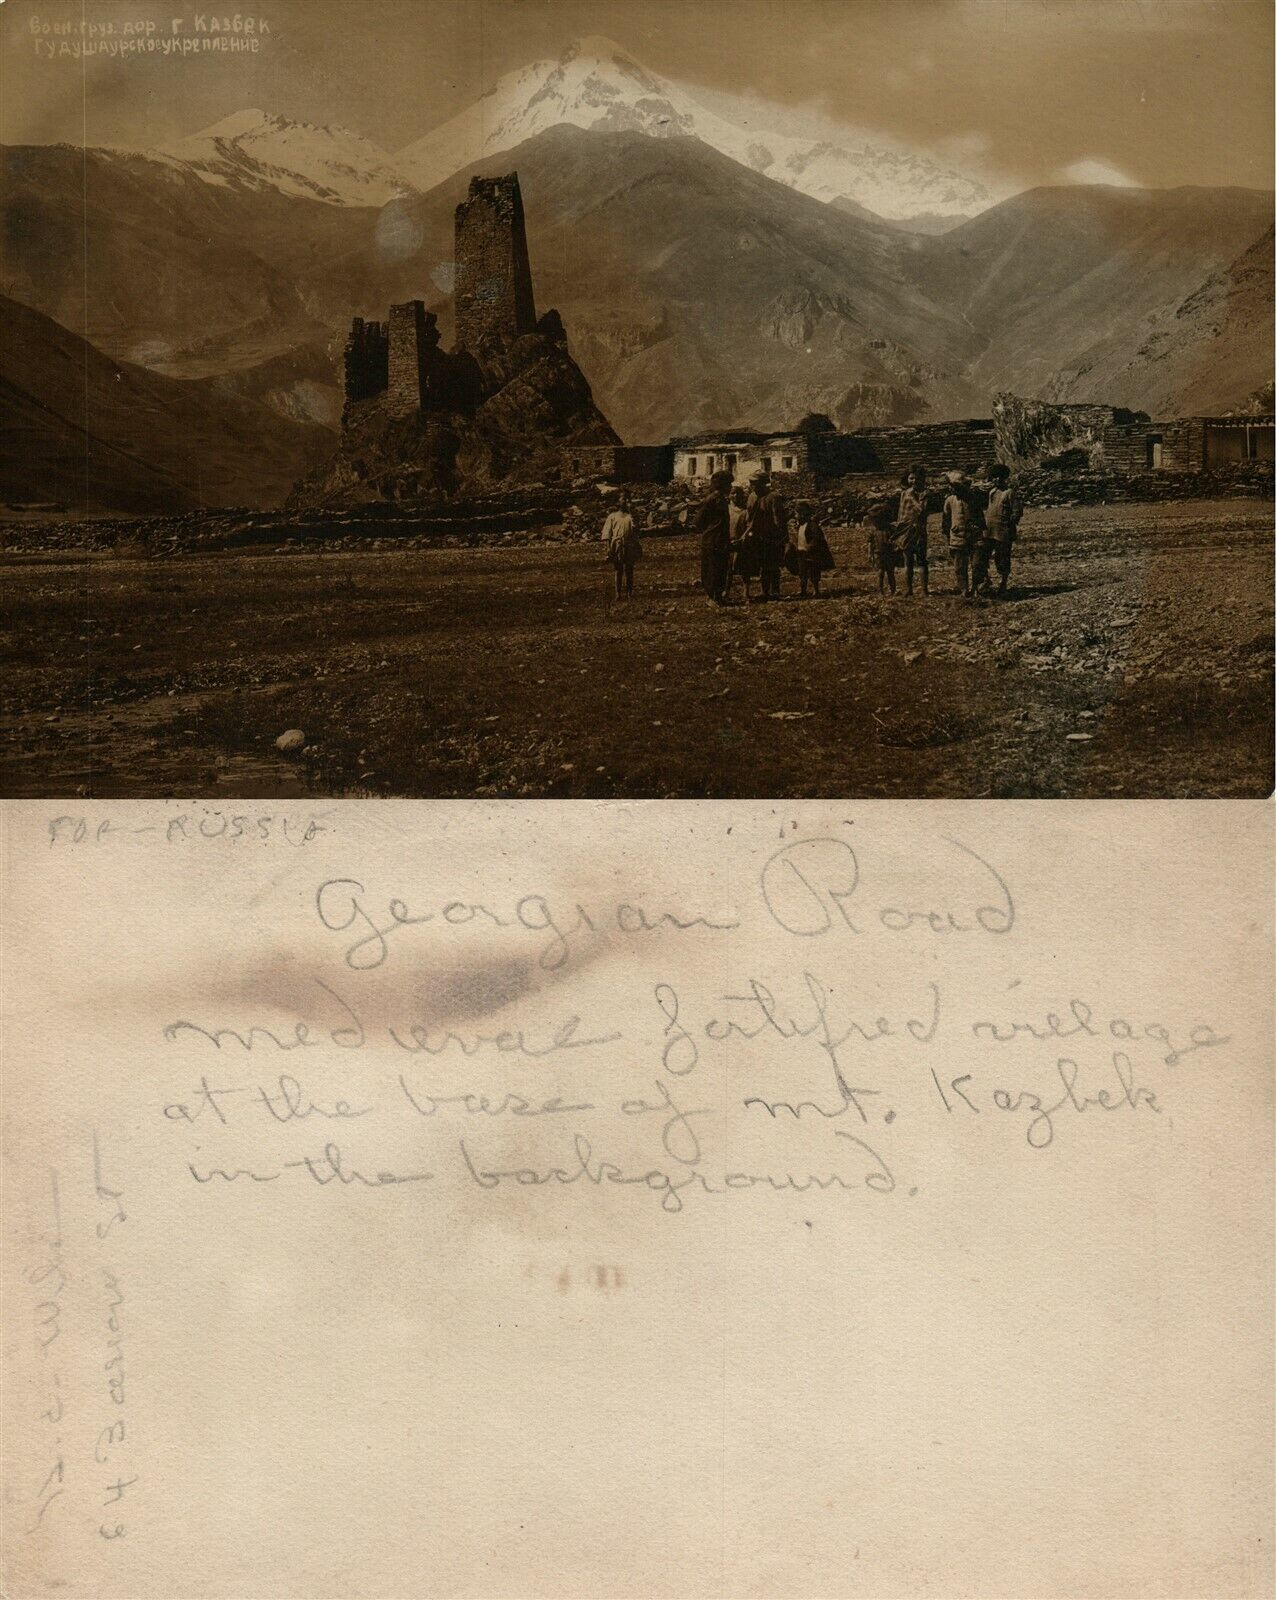 Воен. груз. дор. г. Казбек
Гудушаурское укрепление
TOP - RUSSIA
Georgian Road
medieval fortified village
at the base of mt. Kazbek
in the background.